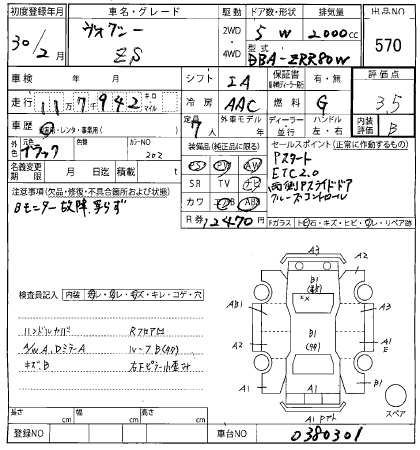 初度登録年月 車名・グレード 駆動 ドア数・形状 排気量 出品NO
30/2月 ヴォクシー ZS 2WD・4WD 5 W 2000cc 570
型式 DBA-ZRR80W
車検 年 月 シフト IA 保証書 有・無 評価点
走行 117942 キロ マイル 冷房 AAC 燃料 G 3.5
車歴 自家用・レンタ・事業用( ) 定員 7人 外車モデル 年 ディーラー 並行 ハンドル 左・右 内装評価 B
外色 元色 ブラック 色替 カラーNO 202
装備品(純正品に限る) セールスポイント(正常に作動するもの)
名義変更期限 月 日迄 積載 t
PS PW Pスタート
SR TV ナビ ETC2.0
カワ エアB ABS 両側Pスライドドア
クルーズコントロール
注意事項(欠品・修復・不具合箇所および状態)
Bモニター故障 写らず
R券 12470円
Fガラス ト石・キズ・ヒビ・ワレ・リペア跡
検査員記入 内装 スレ・キズ・キレ・コゲ・穴
ハンドルカバー RフロアU
A/W A、Dミラー A ルーフB(タタ)
キズ、B 右下ピラー小歪み
A3 A2 B1 XX AB1 A3 A2 B1 (タタ) A1 E A1 A1 B1
A1 Pアト スペア
長さ cm 幅 cm 高さ cm
登録NO 車台NO 0380301